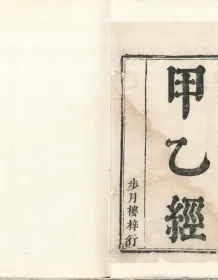 甲乙經
步月樓梓行